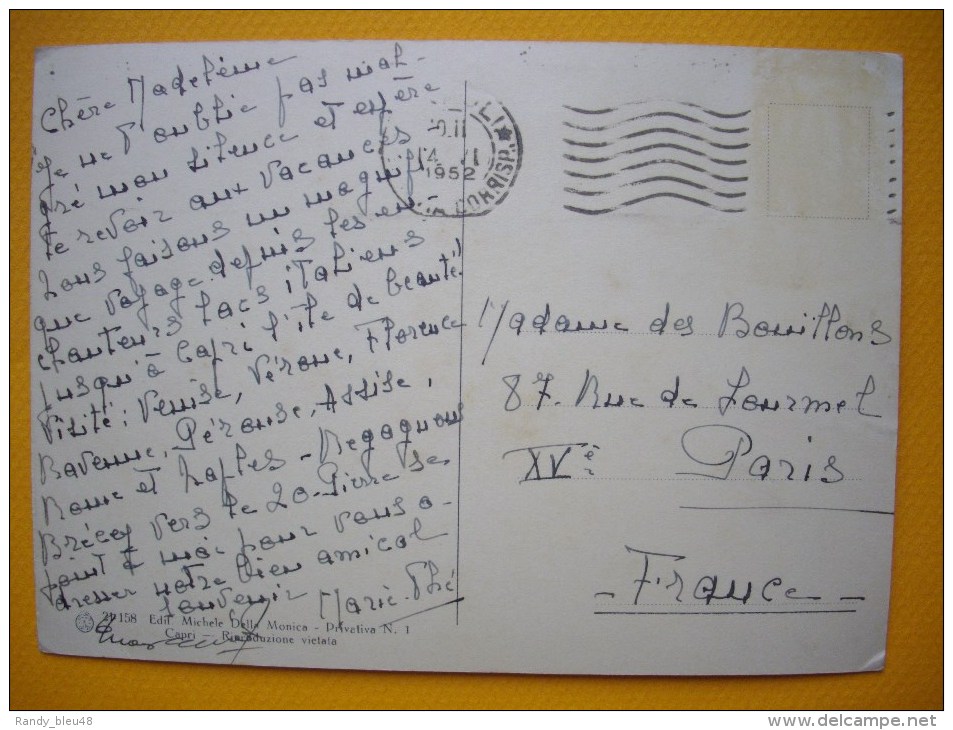 Chère Madeleine
Je ne t'oublie pas mal-
gré mon silence et espère
te revoir aux vacances
Nous faisons un magnifi-
que voyage depuis les en-
chanteurs lacs italiens
jusqu'à Capri l'île de beauté!
Visité: Venise, Vérone, Florence
Ravenne, Pérouse, Assise,
Rome et Naples - Regagnons
Brécey vers le 20 - Pierre se
joint à moi pour vous a-
dresser notre bien amical
souvenir Marie-Thé
21158 Edit. Michele Della Monica - Privativa N. 1
Capri — Riproduzione vietata
1952
Madame des Bouillons
87. Rue de Lourmel
XVè
Paris
- France -
Randy_bleu48
http://www.delcampe.net